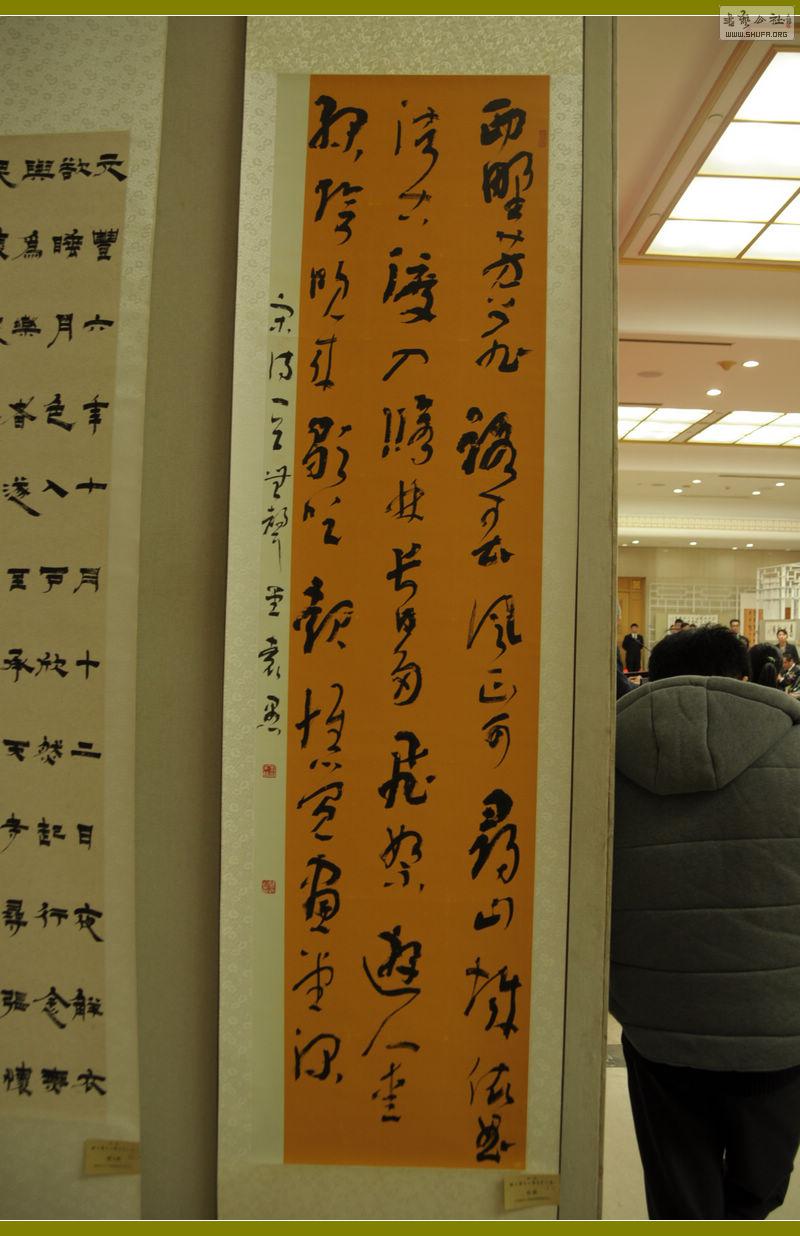 西野芳菲路春風正可尋山城依曲
渚古渡入脩林長日多飛絮遊人愛
綠陰晚來歌吹起惟覺畫堂深
宋詩一首無聲堂袁
元豐六年十月十二日夜解衣
欲睡月色入戶欣然起行念無
與為樂者遂至承天寺尋張懷
民
書藝公社
WWW.SHUFA.ORG